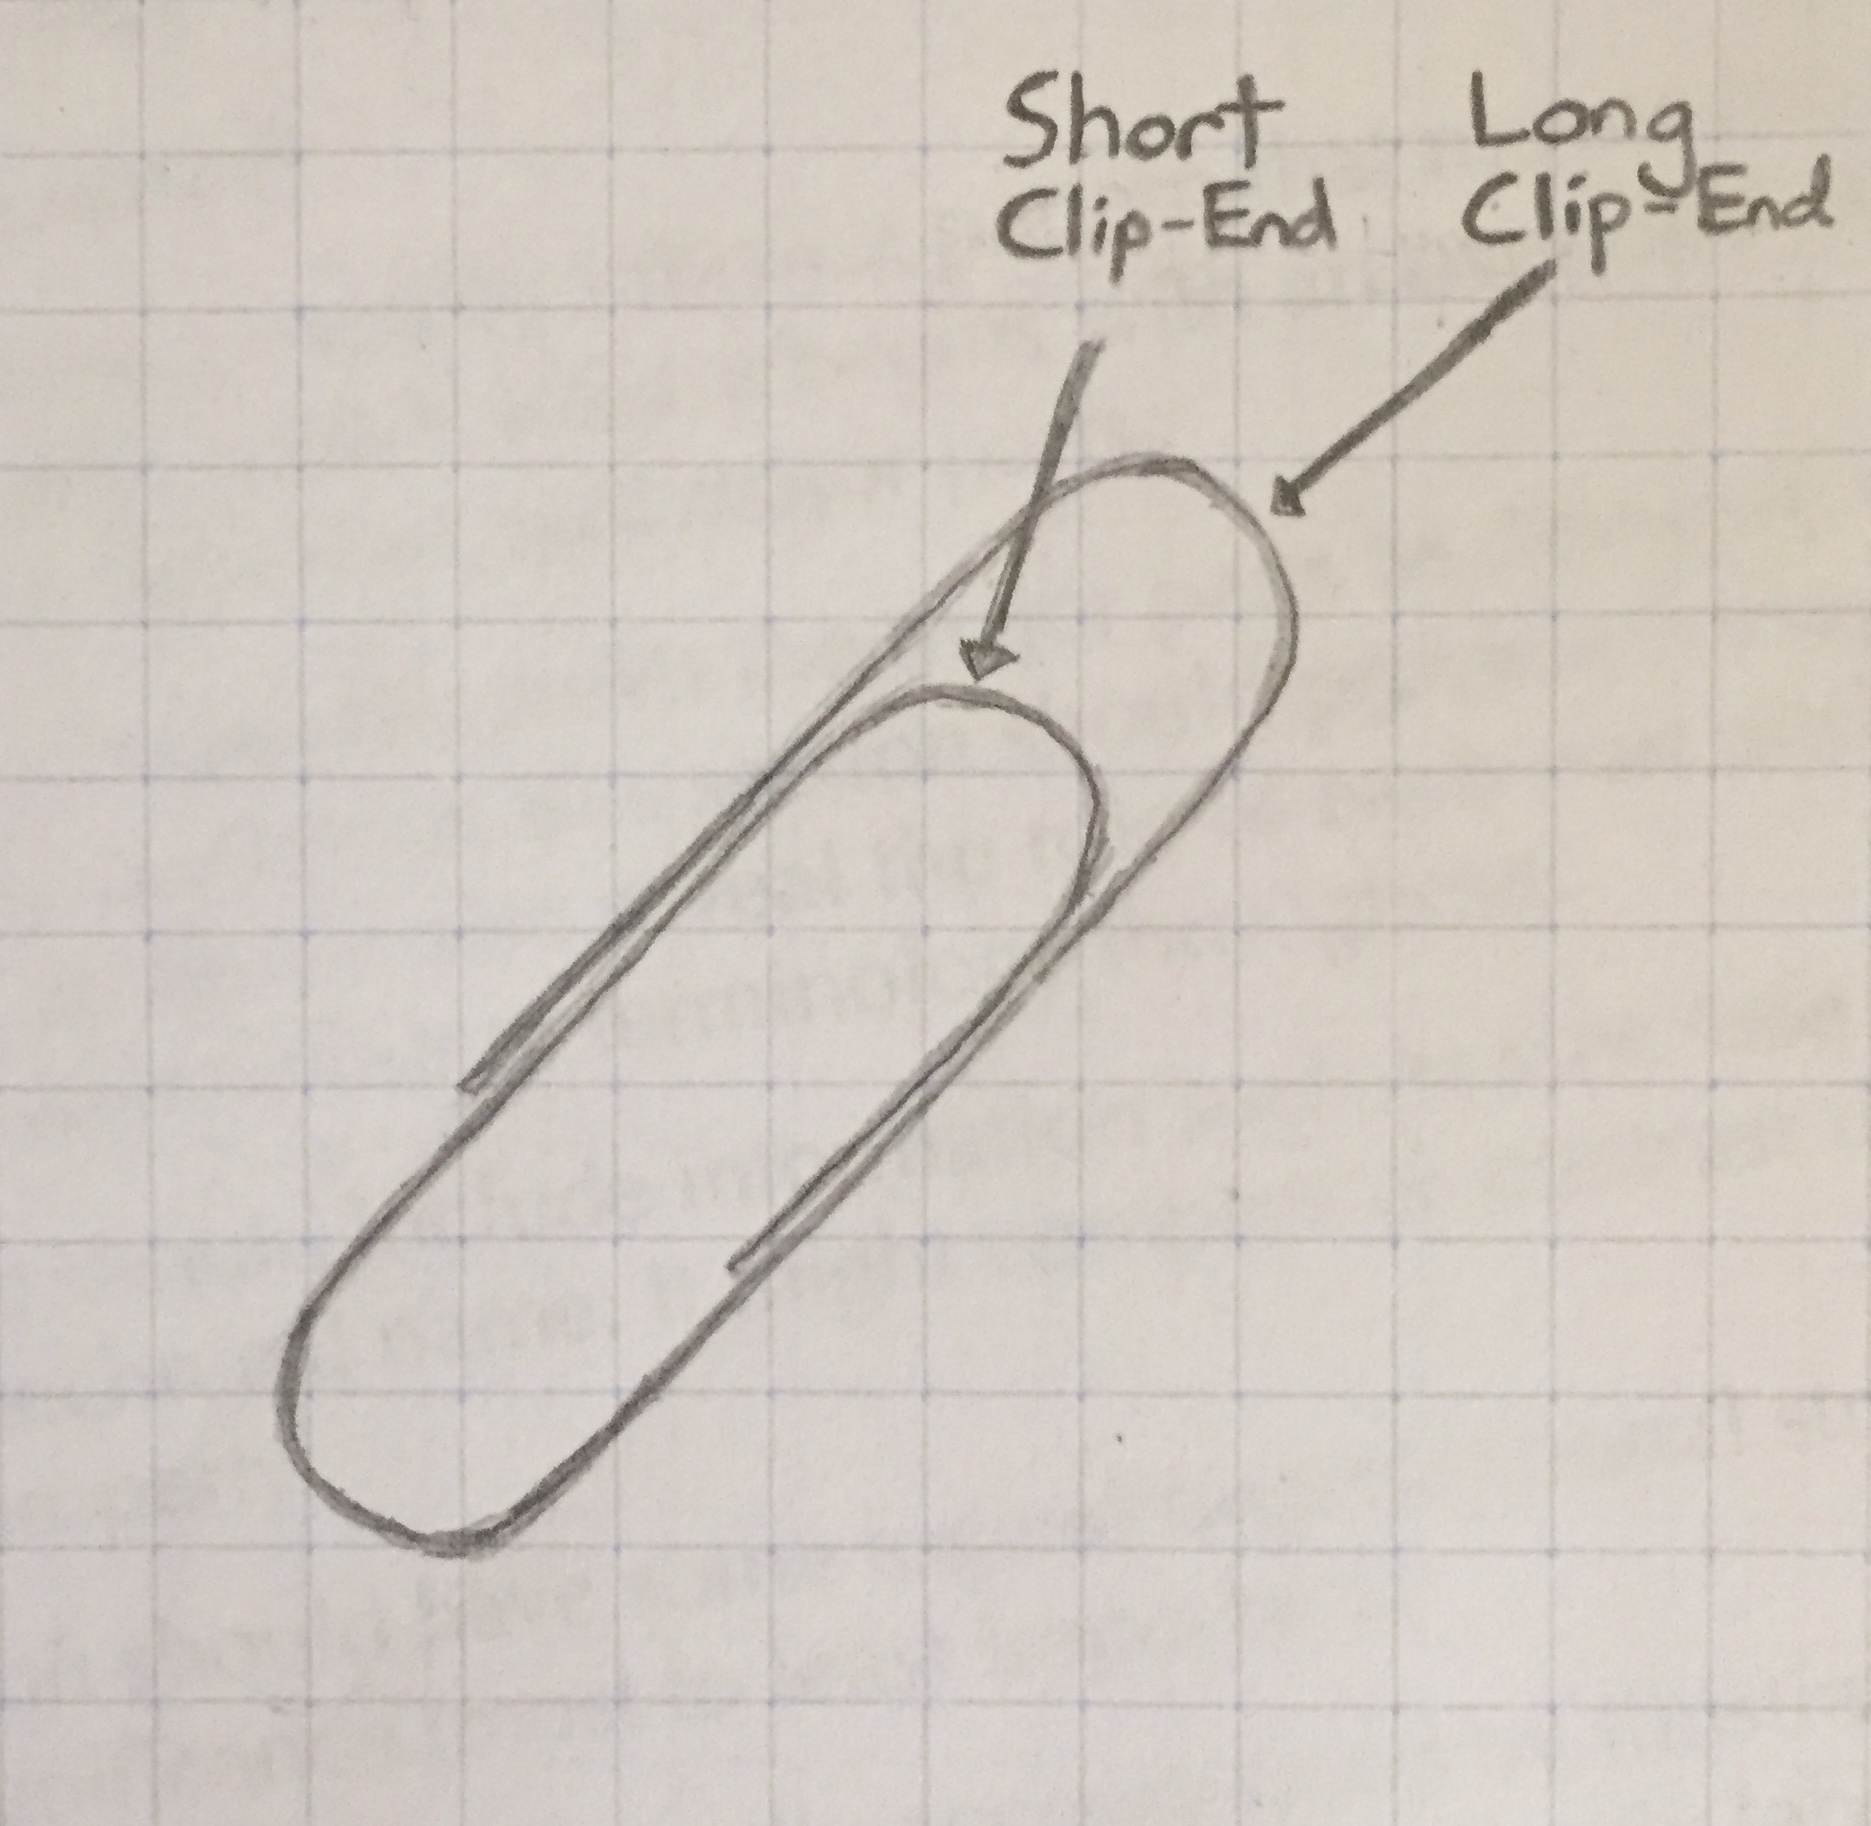 Short
Clip-End
Long
Clip-End